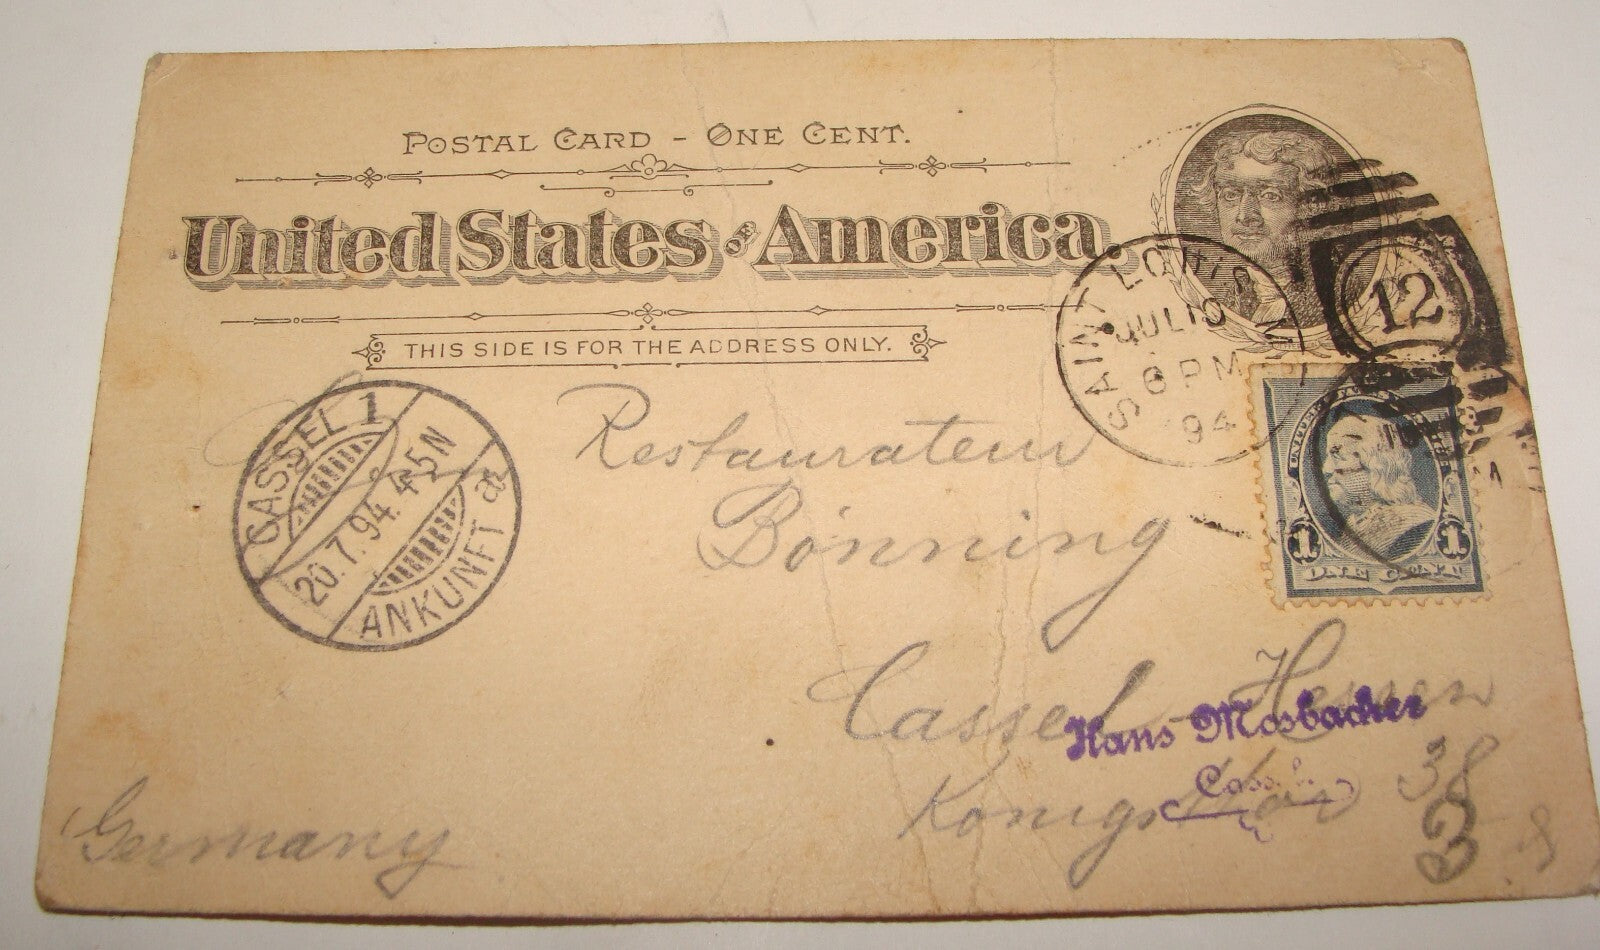 POSTAL CARD - ONE CENT.
United States OF America.
THIS SIDE IS FOR THE ADDRESS ONLY.
SAINT LOUIS MO
JUL 10
6 PM
94
12
UNITED
1 1
ONE CENT
CASSEL 1
20.7.94. 4-5N
ANKUNFT a
Restaurateur
Bönning
Cassel Hessen
Hans Mosbacher
Cassel
Königsthor 38
3
Germany